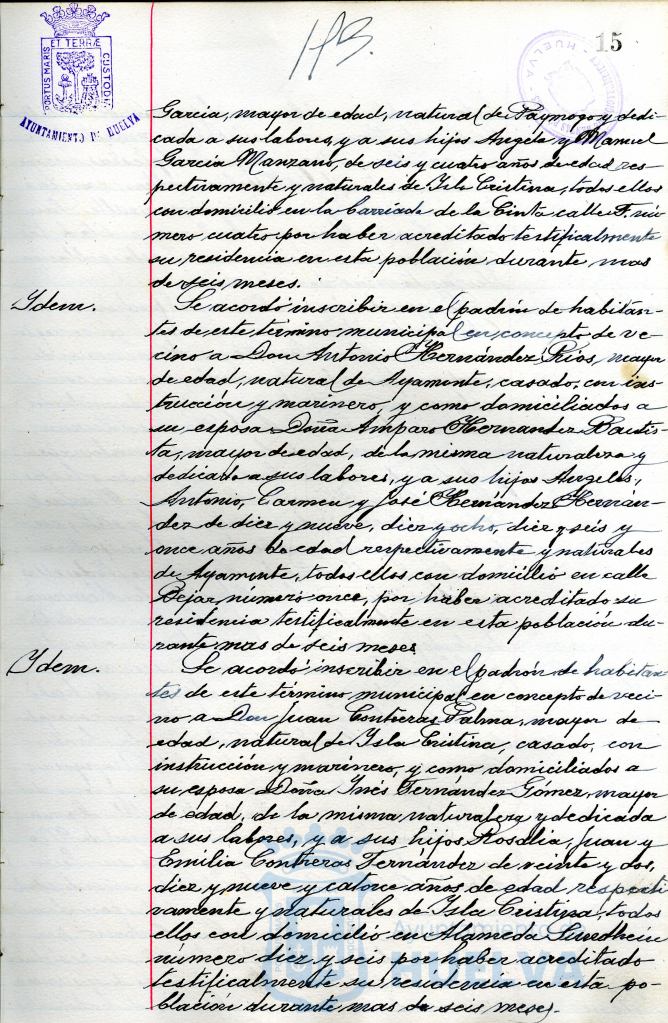 113.
15
PORTUS MARIS ET TERRÆ CUSTODIA
AYUNTAMIENTO DE HUELVA
HUELVA
Garcia, mayor de edad, natural de Paymogo y dedi-
cada a sus labores, y a sus hijos Angela y Manuel
Garcia Manzano, de seis y cuatro años de edad res-
pectivamente y naturales de Isla Cristina, todos ellos
con domicilio en la barriada de la Cinta calle F. nú-
mero cuatro por haber acreditado testificalmente
su residencia en esta poblacion durante mas
de seis meses.
Idem.
Se acordó inscribir en el padrón de habitan-
tes de este término municipal en concepto de ve-
cino a Don Antonio Hernández Rios, mayor
de edad, natural de Ayamonte, casado, con ins-
trucción y marinero, y como domiciliados a
su esposa Doña Amparo Hernandez Bautis-
ta, mayor de edad, de la misma naturaleza y
dedicada a sus labores, y a sus hijos Angeles,
Antonio, Carmen y José Hernández Hernán-
dez de diez y nueve, diez y ocho, diez y seis y
once años de edad respectivamente y naturales
de Ayamonte, todos ellos con domicilio en calle
Bejar, numero once, por haber acreditado su
residencia testificalmente en esta población du-
rante mas de seis meses
Idem.
Se acordó inscribir en el padrón de habitan-
tes de este término municipal en concepto de veci-
no a Don Juan Contreras Palma, mayor de
edad, natural de Isla Cristina, casado, con
instrucción y marinero, y como domiciliados a
su esposa Doña Inés Fernández Gómez, mayor
de edad, de la misma naturaleza y dedicada
a sus labores, y a sus hijos Rosalia, Juan y
Emilia Contreras Fernández de veinte y dos,
diez y nueve y catorce años de edad respecti-
vamente y naturales de Isla Cristina, todos
ellos con domicilio en Alameda Sundheim
numero diez y seis por haber acreditado
testificalmente su residencia en esta po-
blación durante mas de seis meses.
Ayuntamiento de
HUELVA